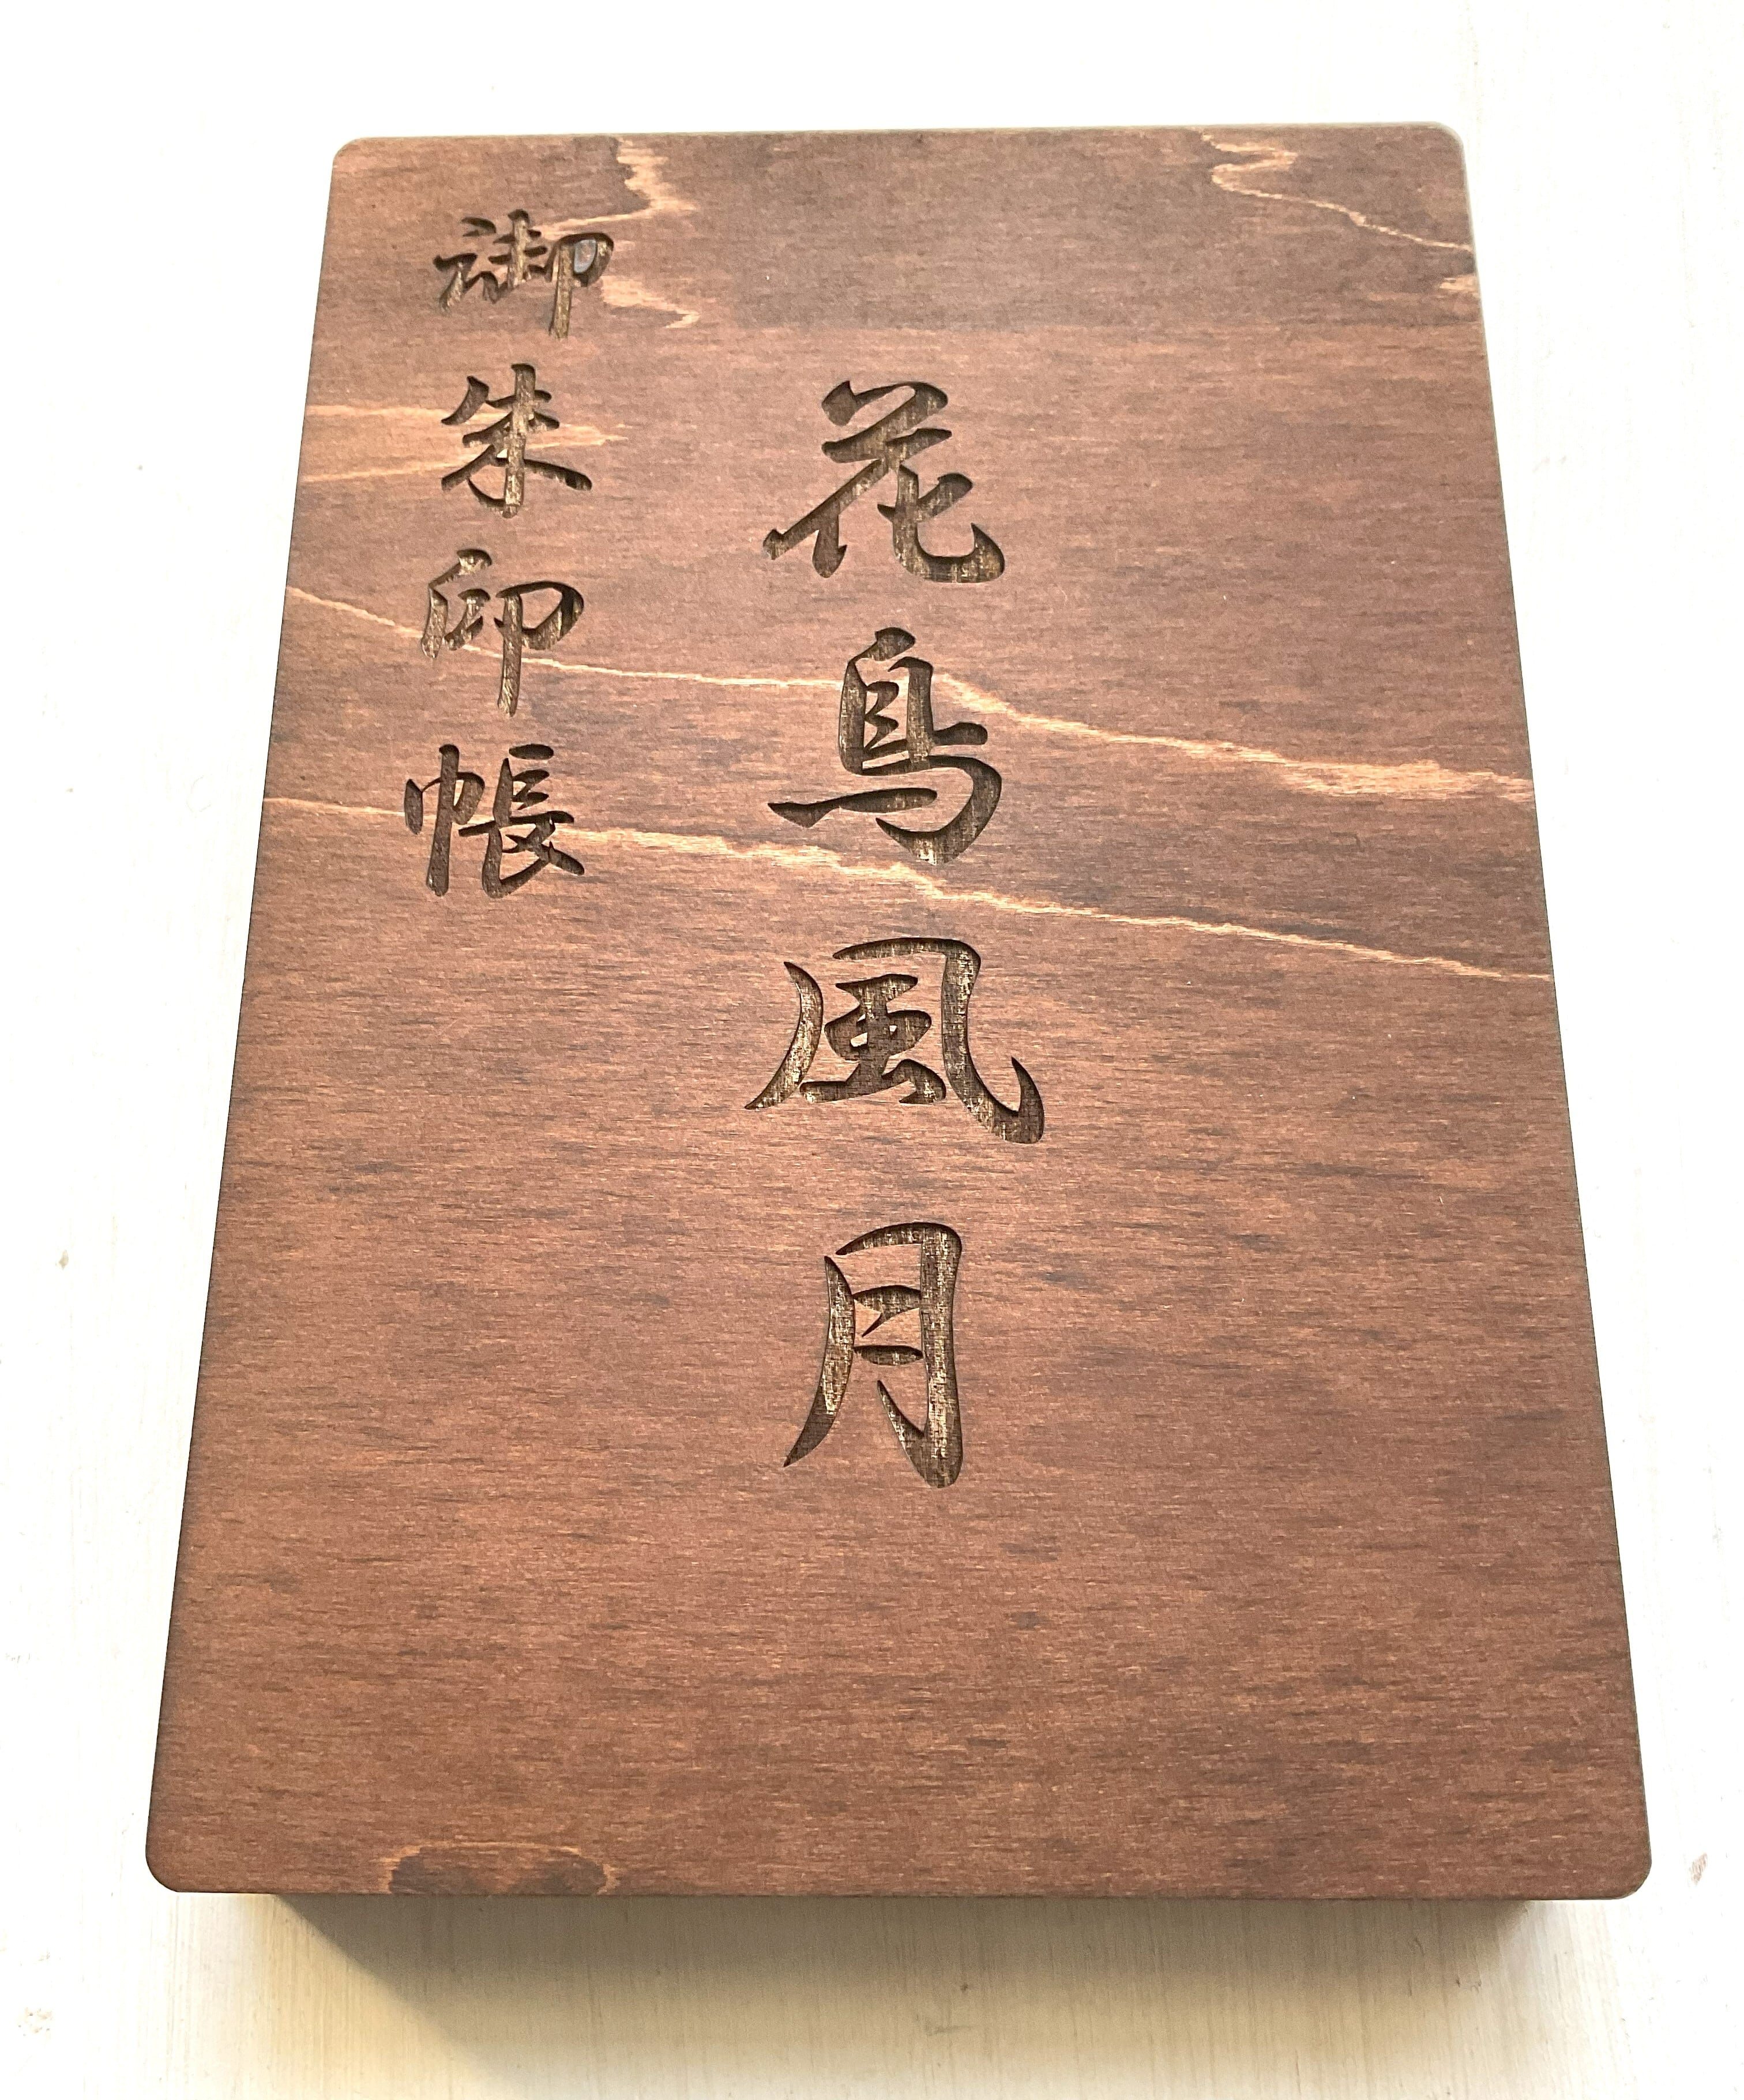 花鳥風月
御朱印帳